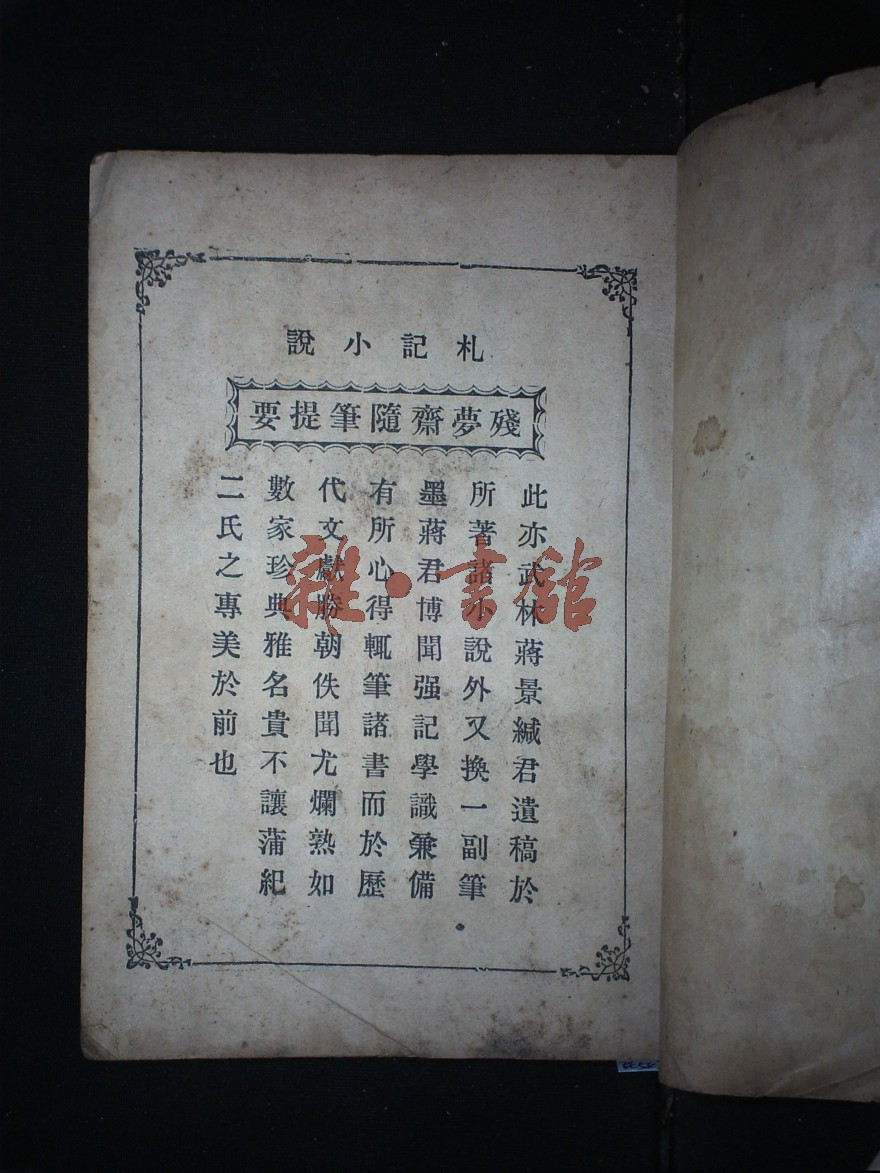 札記小說
殘夢齋隨筆提要
此亦武林蔣景緘君遺稿於
所著諸小說外又換一副筆
墨蔣君博聞强記學識兼備
有所心得輒筆諸書而於歷
代文獻勝朝佚聞尤爛熟如
數家珍典雅名貴不讓蒲紀
二氏之專美於前也
雜·書館